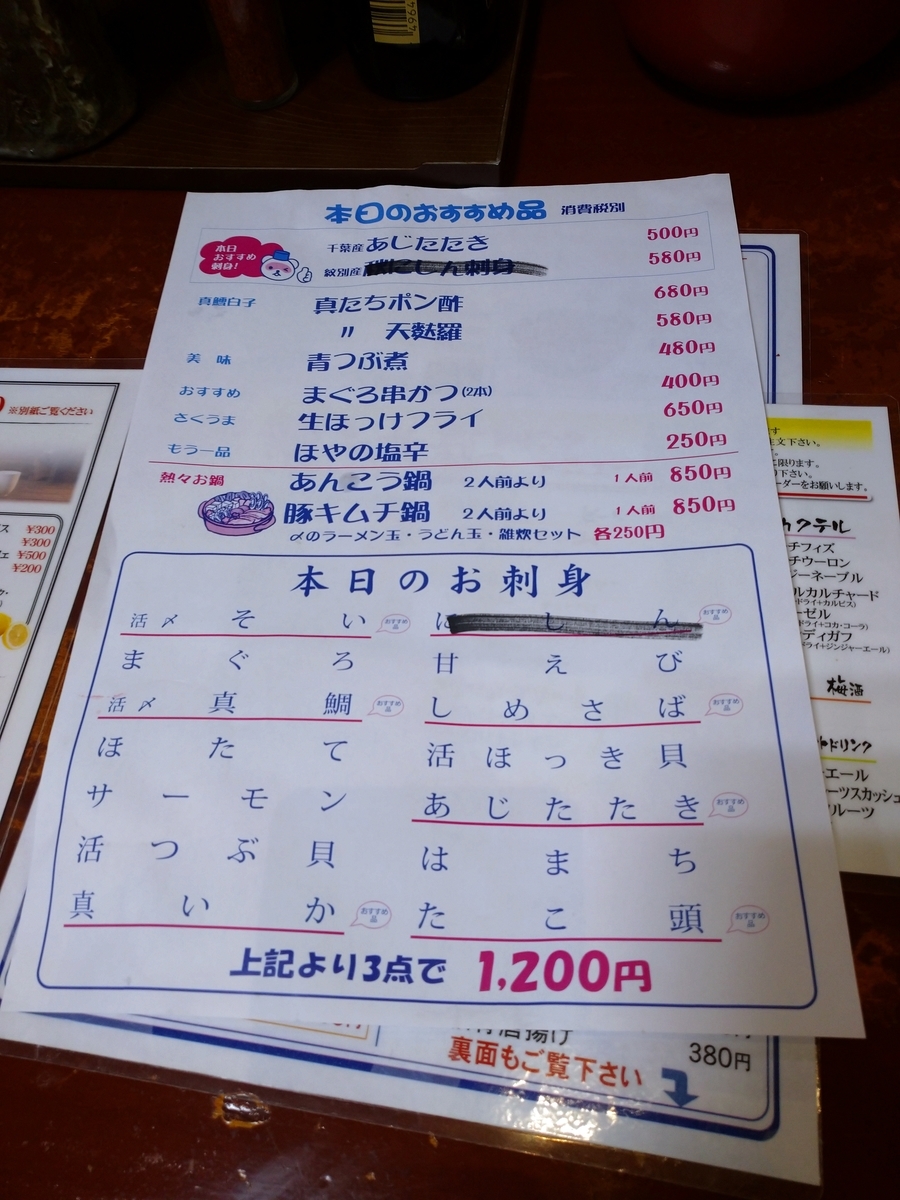 本日のおすすめ品 消費税別
本日
おすすめ
刺身!
千葉産 あじたたき 500円
紋別産 にしん刺身 580円
真鱈白子 真たちポン酢 680円
〃 天麩羅 580円
美味 青つぶ煮 480円
おすすめ まぐろ串かつ(2本) 400円
さくうま 生ほっけフライ 650円
もう一品 ほやの塩辛 250円
熱々お鍋 あんこう鍋 2人前より 1人前 850円
豚キムチ鍋 2人前より 1人前 850円
〆のラーメン玉・うどん玉・雑炊セット 各250円
本日のお刺身
活〆 そい おすすめ品 にしん おすすめ品
まぐろ 甘えび
活〆 真鯛 おすすめ品 しめさば おすすめ品
ほたて 活ほっき貝
サーモン あじたたき おすすめ品
活つぶ貝 はまち
真いか おすすめ品 たこ頭 おすすめ品
上記より3点で 1,200円
唐揚げ 380円
裏面もご覧下さい
※別紙ご覧ください
¥300
¥300
¥500
¥200
注文下さい。
に限ります。
下さい。
ーダーをお願いします。
カクテル
チフィズ
チウーロン
ジーネーブル
ルカルチャード
(ドライ+カルピス)
ーゼル
ドライ+コカ・コーラ)
ディガフ
ドライ+ジンジャーエール)
梅酒
ドリンク
エール
ーツスカッシュ
ルーツ
4964